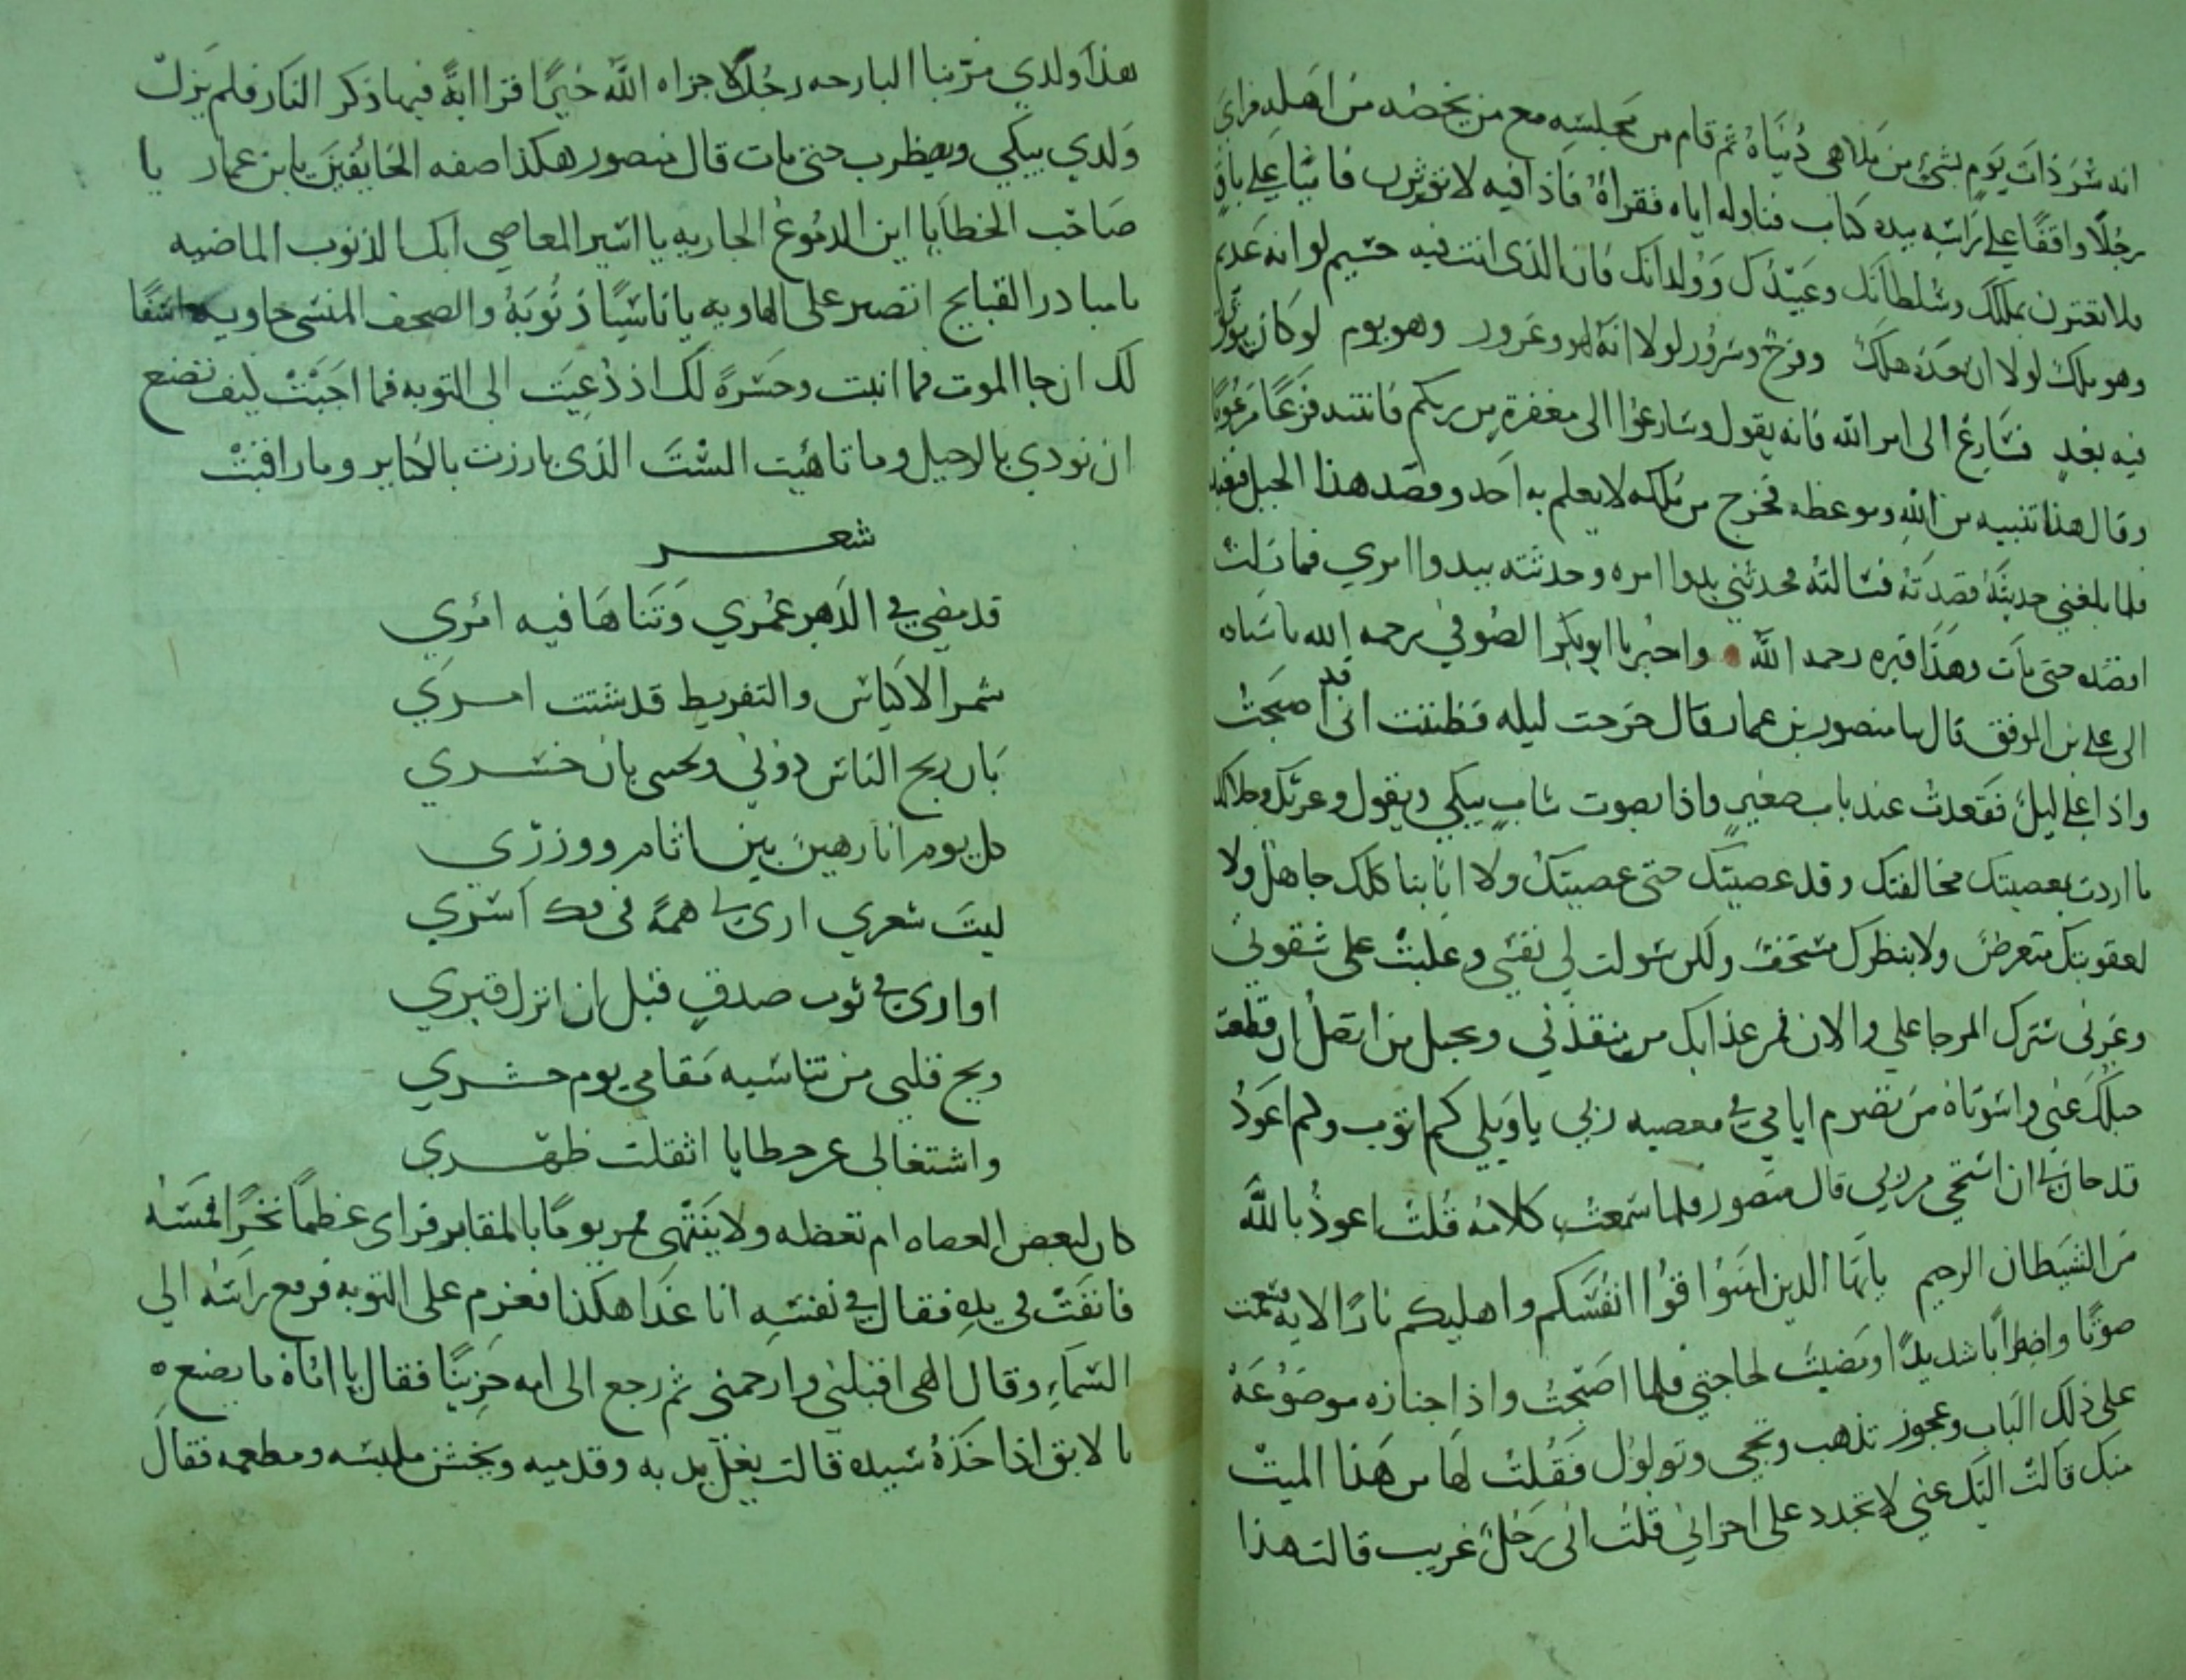 انه سر ذات يوم بشئ من ملاهى دنياه ثم قام من مجلسه مع من يخصه من اهله فراى
رجلا واقفا على راسه بيده كتاب فناوله اياه فقراه فاذا فيه لا توثرن فانيا على باق
ولا تغترن بملكك وسلطانك وعبيدك وولدانك فان الذى انت فيه جسيم لو انه عديم
وهو ملك لولا ان بعده هلك وفرح وسرور لولا انه لهو وغرور وهو يوم لو كان يوثق
فيه بغد فسارع الى امر الله فانه يقول وسارعوا الى مغفرة من ربكم فانتبه فزعا مرعوبا
وقال هذا تنبيه من الله وموعظه فخرج من ملكه لا يعلم به احد وقصد هذا الجبل فتعبد
فلما بلغني حديثه قصدته فسالته فحدثني ببدوا امره وحدثته ببدوا امري فما زلت
اقصده حتى مات وهذا قبره رحمه الله واخبرنا ابو بكر الصوفي رحمه الله باسناده
الى على بن الموفق قال لنا منصور بن عمار قال خرجت ليله فظننت انى قد اصبحت
واذا على ليل فقعدت عند باب صغير واذا بصوت شاب يبكي ويقول وعزتك وجلالك
ما اردت بمعصيتك مخالفتك وقد عصيتك حتى عصيتك ولا انا بنكالك جاهل ولا
لعقوبتك متعرض ولا بنظرك مستخف ولكن سولت لي نفسي وغلبت على شقوتي
وغرني سترك المرجا علي والان فمن عذابك من ينقذني وبحبل من اتصل ان قطعت
حبلك عني واسوتاه من تصرم ايامي في معصيه ربي يا ويلي كم اتوب وكم اعود
قد حان لي ان استحي من ربي قال منصور فلما سمعت كلامه قلت اعوذ بالله
من الشيطان الرجيم يا ايها الذين امنوا قوا انفسكم واهليكم نارا الايه فسمعت
صوتا واضطرابا شديدا ومضيت لحاجتي فلما اصبحت واذا جنازه موضوعة
على ذلك الباب وعجوز تذهب وتجي وتولول فقلت لها من هذا الميت
منك قالت اليك عني لا تجدد على احزاني قلت انى رجل غريب قالت هذا
هذا ولدي مر بنا البارحه رجلا لا جزاه الله خيرا قرا اية فيها ذكر النار فلم يزل
ولدي يبكي ويضطرب حتى مات قال منصور هكذا صفه الخايفين يا بن عمار يا
صاحب الخطايا اين الدموع الجاريه يا اسير المعاصي ابك الذنوب الماضيه
يا مبادرا القبايح اتصبر على الهاويه يا ناسيا ذنوبه والصحف المنسى حاويه اسفا
لك ان جا الموت فما انبت وحسرة لك اذ دعيت الى التوبه فما اجبت كيف تصنع
ان نودي بالرحيل وما تاهبت الست الذى بارزت بالكبائر وما راقبت
شعر
قد مضى في الدهر عمري وتناها فيه امري
شمر الاكياس والتفريط قد شتت امري
بان ربح الناس دوني ولحسى بان خسري
كل يوم انا رهين بين اثام ووزري
ليت شعري ارى لي همة في فك اسري
او ارى في ثوب صدق قبل ان انزل قبري
ويح قلبي من تناسيه مقامي يوم حشري
واشتغالى عن خطايا اثقلت ظهري
كان لبعض العصاه ام تعظه ولا ينتهى فمر يوما بالمقابر فراى عظما نخرا فمسه
فانفت في يده فقال في نفسه انا غدا هكذا فعزم على التوبه فرفع راسه الي
السماء وقال الهى اقبلني وارحمني ثم رجع الى امه حزينا فقال يا اماه ما يصنع ه
بالابق اذا اخذه سيده قالت يغل يديه وقدميه ويخشن ملبسه ومطعمه فقال